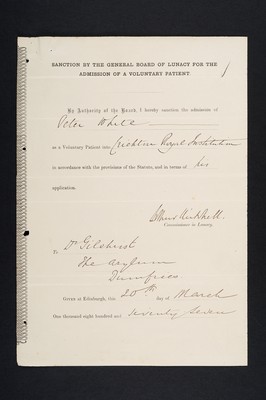 SANCTION BY THE GENERAL BOARD OF LUNACY FOR THE
ADMISSION OF A VOLUNTARY PATIENT
1
By Authority of the Board, I hereby sanction the admission of
Peter White
as a Voluntary Patient into Crichton Royal Institution
in accordance with the provisions of the Statute, and in terms of his
application.
Commissioner in Lunacy.
To Dr Gilchrist
The Asylum
Dumfries
Given at Edinburgh, this 20th day of March
One thousand eight hundred and seventy seven